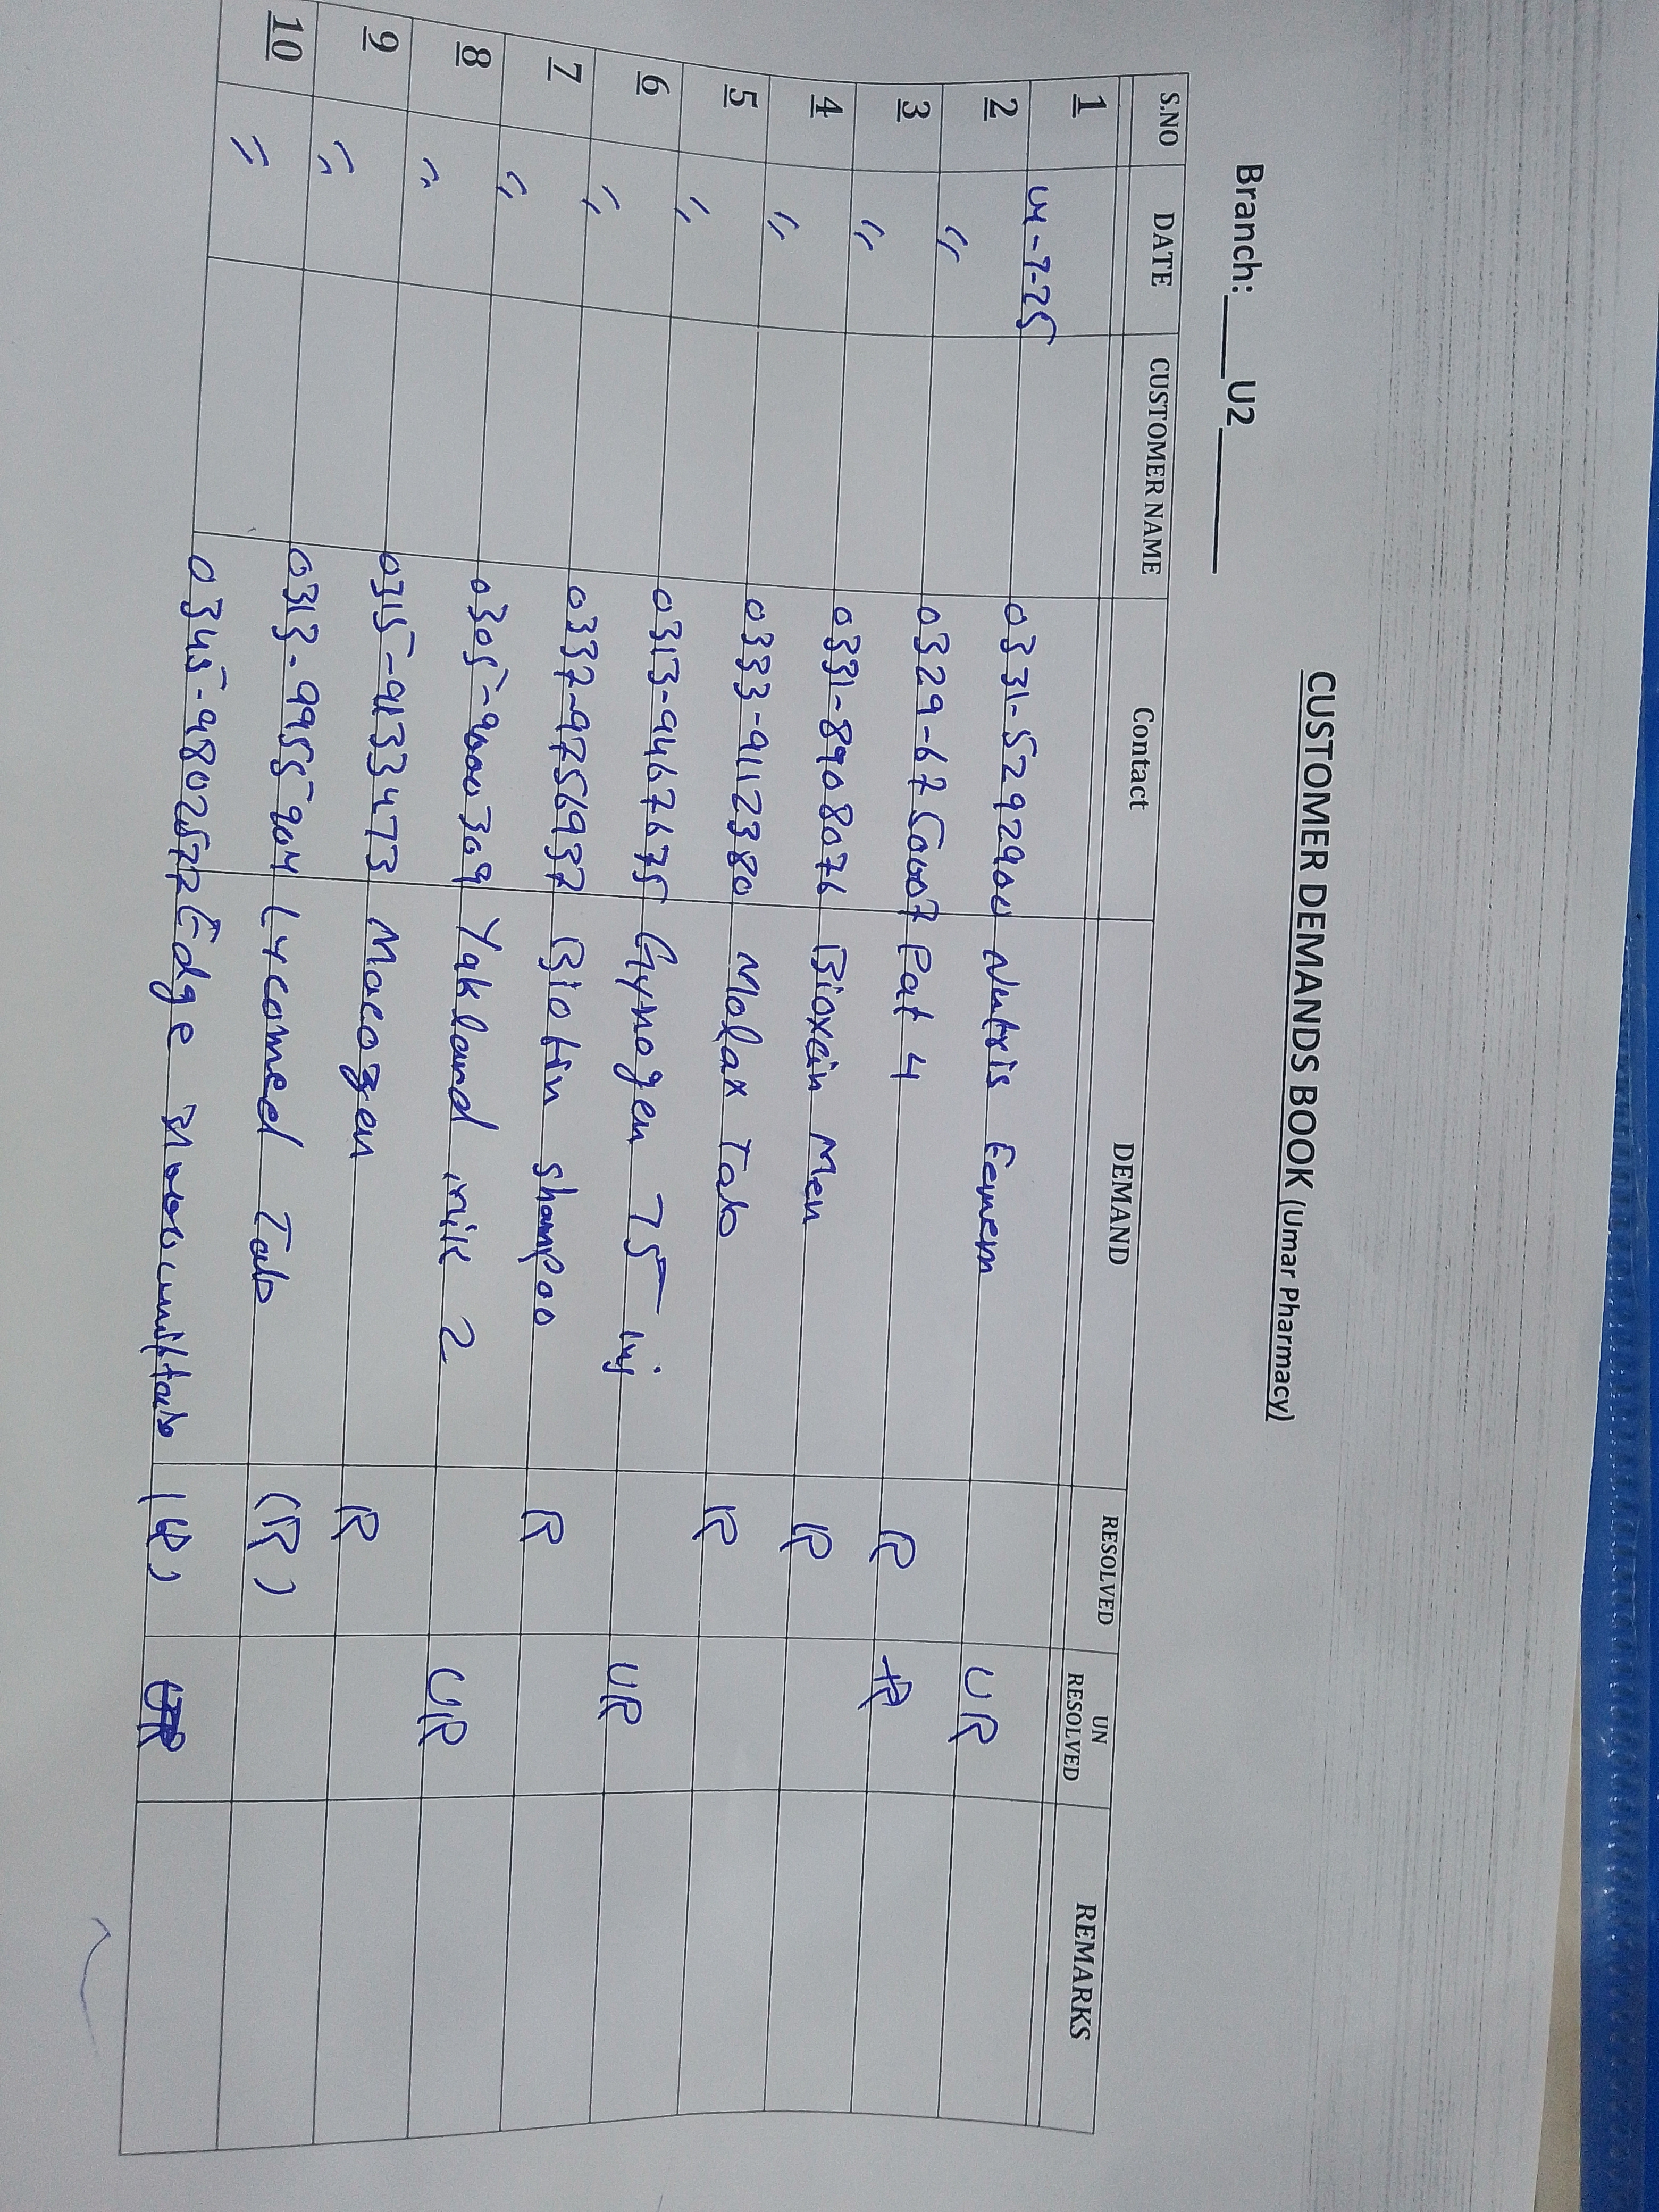 CUSTOMER DEMANDS BOOK (Umar Pharmacy)
Branch: U2
S.NO DATE CUSTOMER NAME Contact DEMAND RESOLVED UN RESOLVED REMARKS
1 04-7-25 0331-5292900 Nutris UR
2 〃 0329-6750007 Pat 4 R
3 〃 0331-8908076 Bioxcin Men R
4 〃 0333-9112380 Molax Tab R
5 〃 0313-9467675 Gynogen 75 inj UR
6 〃 0337-9756937 Biotin shampoo R
7 〃 0305-9000309 Yakland milk 2 UR
8 〃 0315-9133473 Macozen R
9 〃 0313-9955904 Lycomed Tab (R)
10 〃 0345-9802577 Edge (R)